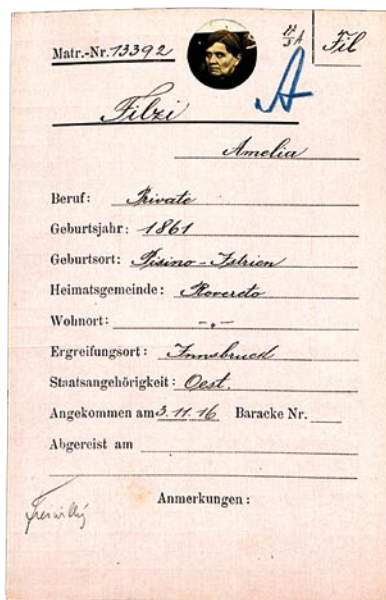 Matr.-Nr. 13392
Fil
A
Filzi
Amelia
Beruf: Private
Geburtsjahr: 1861
Geburtsort: Pisino - Istrien
Heimatsgemeinde: Rovereto
Wohnort: -„-
Ergreifungsort: Innsbruck
Staatsangehörigkeit: Oest.
Angekommen am 3.11.16 Baracke Nr.
Abgereist am
Anmerkungen:
Freiwillig